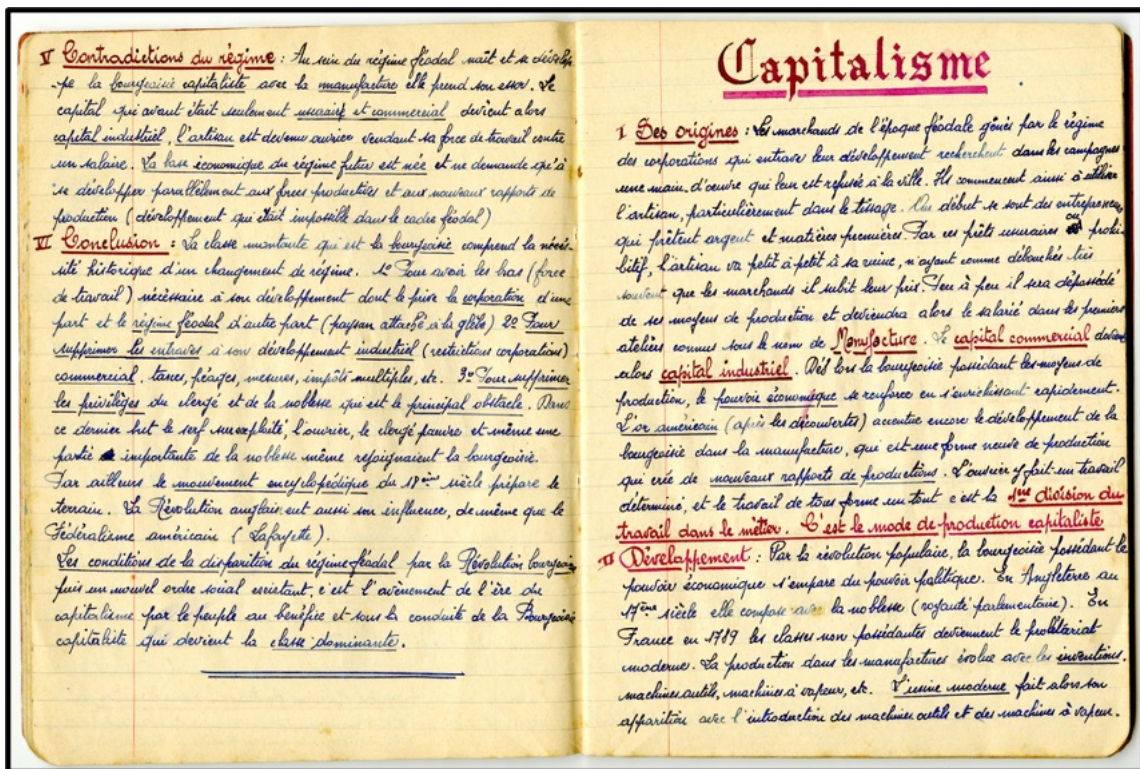 V Contradictions du régime : Au sein du régime féodal naît et se dévelop
-pe la bourgeoisie capitaliste avec la manufacture elle prend son essor. Le
capital qui avant était seulement usuraire et commercial devient alors
capital industriel, l'artisan est devenu ouvrier vendant sa force de travail contre
un salaire. La base économique du régime futur est née et ne demande qu'à
se développer parallèlement aux forces productives et aux nouveaux rapports de
production (développement qui était impossible dans le cadre féodal)
VI Conclusion : La classe montante qui est la bourgeoisie comprend la néces-
sité historique d'un changement de régime. 1º Pour avoir les bras (force
de travail) nécessaire à son développement dont le prive la corporation d'une
part et le régime féodal d'autre part (paysan attaché à la glèbe) 2º Pour
supprimer les entraves à son développement industriel (restrictions corporations)
commercial, taxes, péages, mesures, impôts multiples, etc. 3º Pour supprimer
les privilèges du clergé et de la noblesse qui est le principal obstacle. Dans
ce dernier but le serf surexploité, l'ouvrier, le clergé pauvre et même une
partie importante de la noblesse même rejoignaient la bourgeoisie.
Par ailleurs le mouvement encyclopédique du 18ème siècle prépare le
terrain. La Révolution anglaise eut aussi son influence, de même que le
Fédéralisme américain (Lafayette).
Les conditions de la disparition du régime féodal par la Révolution bourgeoise
puis un nouvel ordre social existant, c'est l'avènement de l'ère du
capitalisme par le peuple au bénéfice et sous la conduite de la Bourgeoisie
capitaliste qui devient la classe dominante.
Capitalisme
I Ses origines : Les marchands de l'époque féodale gênés par le régime
des corporations qui entrave leur développement recherchent dans les campagnes
une main d'œuvre qui leur est refusée à la ville. Ils commencent ainsi à utiliser
l'artisan, particulièrement dans le tissage. Au début se sont des entrepreneurs
qui prêtent argent et matières premières. Par ces prêts usuraires ou prohi-
bitif, l'artisan va petit à petit à sa ruine, n'ayant comme débouchés très
souvent que les marchands il subit leur prix. Peu à peu il sera dépossédé
de ses moyens de production et deviendra alors le salarié dans les premiers
ateliers connus sous le nom de Manufacture. Le capital commercial devient
alors capital industriel. Dès lors la bourgeoisie possédant les moyens de
production, le pouvoir économique se renforce en s'enrichissant rapidement.
L'or américain (après les découvertes) accentue encore le développement de la
bourgeoisie dans la manufacture, qui est une forme neuve de production
qui crée de nouveaux rapports de productions. L'ouvrier y fait un travail
déterminé, et le travail de tous forme un tout c'est la 1ère division du
travail dans le métier. C'est le mode de production capitaliste.
II Développement : Par la révolution populaire, la bourgeoisie possédant le
pouvoir économique s'empare du pouvoir politique. En Angleterre au
17ème siècle elle compose avec la noblesse (royauté parlementaire). En
France en 1789 les classes non possédantes deviennent le prolétariat
moderne. La production dans les manufactures évolue avec les inventions.
machines outils, machines à vapeurs, etc. L'usine moderne fait alors son
apparition avec l'introduction des machines outils et des machines à vapeur.